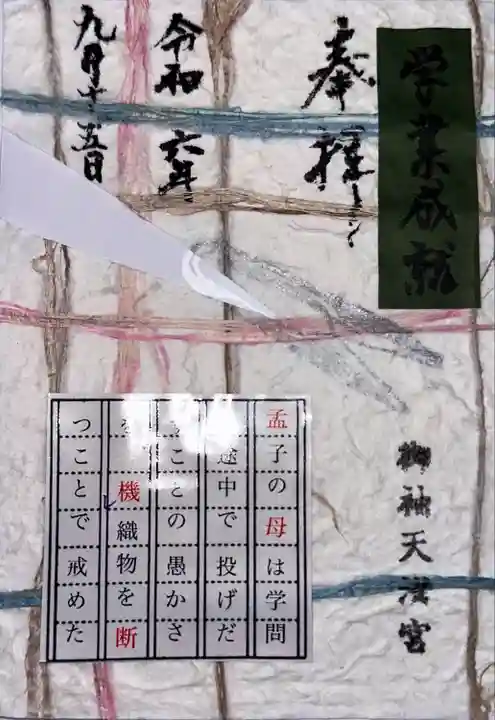 学業成就
奉拝
令和六年
九月十五日
御袖天満宮
孟子の母は学問
途中で投げだ
ことの愚かさ
を機織物を断
つことで戒めた